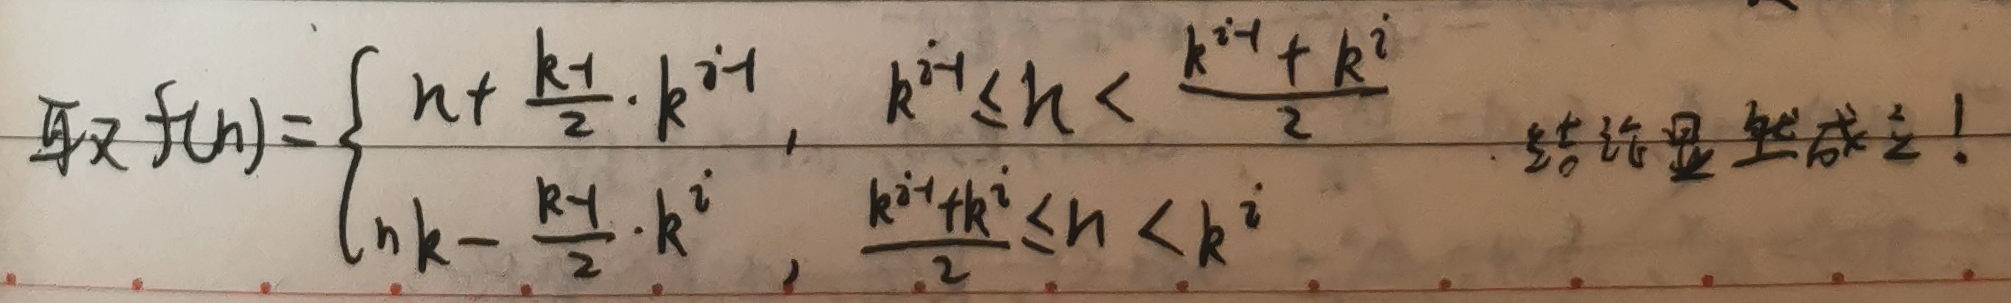 取 f(n) = { n + \frac{k-1}{2} · k^{i-1} , k^{i-1} ≤ n < \frac{k^{i-1} + k^i}{2}
nk - \frac{k-1}{2} · k^i , \frac{k^{i-1} + k^i}{2} ≤ n < k^i
结论显然成立!